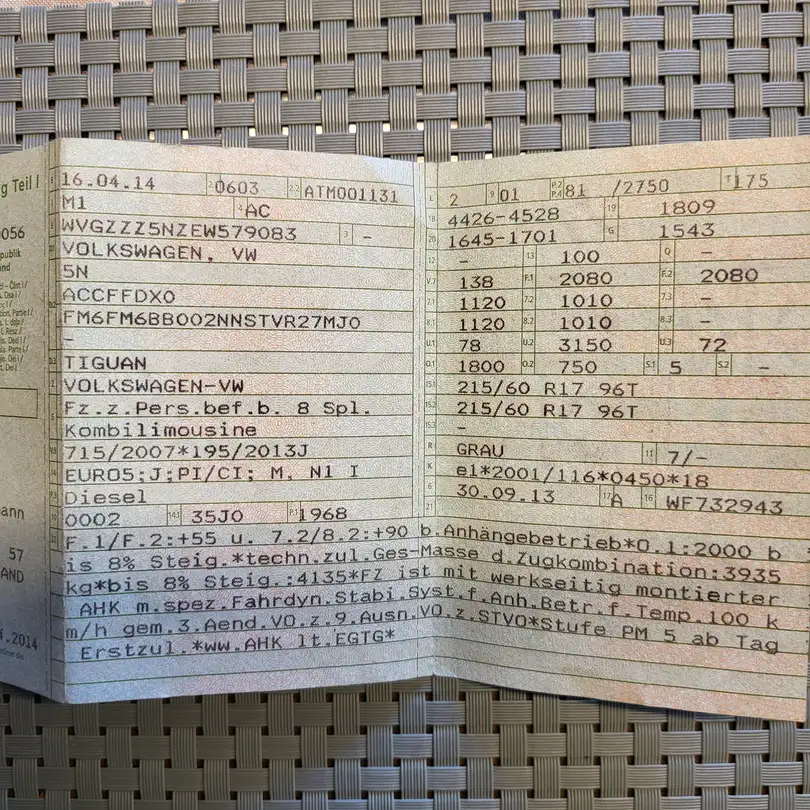 g Teil I
0056
publik
nd
ann
57
AND
4.2014
16.04.14 2.1 0603 2.2 ATM001131
M1 4 AC
WVGZZZ5NZEW579083 3 -
VOLKSWAGEN, VW
5N
ACCFFDX0
FM6FM6BB002NNSTVR27MJ0
-
TIGUAN
VOLKSWAGEN-VW
Fz.z.Pers.bef.b. 8 Spl.
Kombilimousine
715/2007*195/2013J
EURO5;J;PI/CI; M, N1 I
Diesel
0002 14.1 35J0 P.1 1968
L 2 9 01 P.2 P.4 81 /2750 T 175
18 4426-4528 19 1809
20 1645-1701 G 1543
12 - 13 100 Q -
V.7 138 F.1 2080 F.2 2080
7.1 1120 7.2 1010 7.3 -
8.1 1120 8.2 1010 8.3 -
U.1 78 U.2 3150 U.3 72
O.1 1800 O.2 750 S.1 5 S.2 -
15.1 215/60 R17 96T
15.2 215/60 R17 96T
15.3 -
R GRAU 11 7/-
K e1*2001/116*0450*18
6 30.09.13 17 A 16 WF732943
21
F.1/F.2:+55 u. 7.2/8.2:+90 b.Anhängebetrieb*O.1:2000 b
is 8% Steig.*techn.zul.Ges-Masse d.Zugkombination:3935
kg*bis 8% Steig.:4135*FZ ist mit werkseitig montierter
AHK m.spez.Fahrdyn.Stabi.Syst.f.Anh.Betr.f.Temp.100 k
m/h gem.3.Aend.VO.z.9.Ausn.VO.z.STVO*Stufe PM 5 ab Tag
Erstzul.*ww.AHK lt.EGTG*